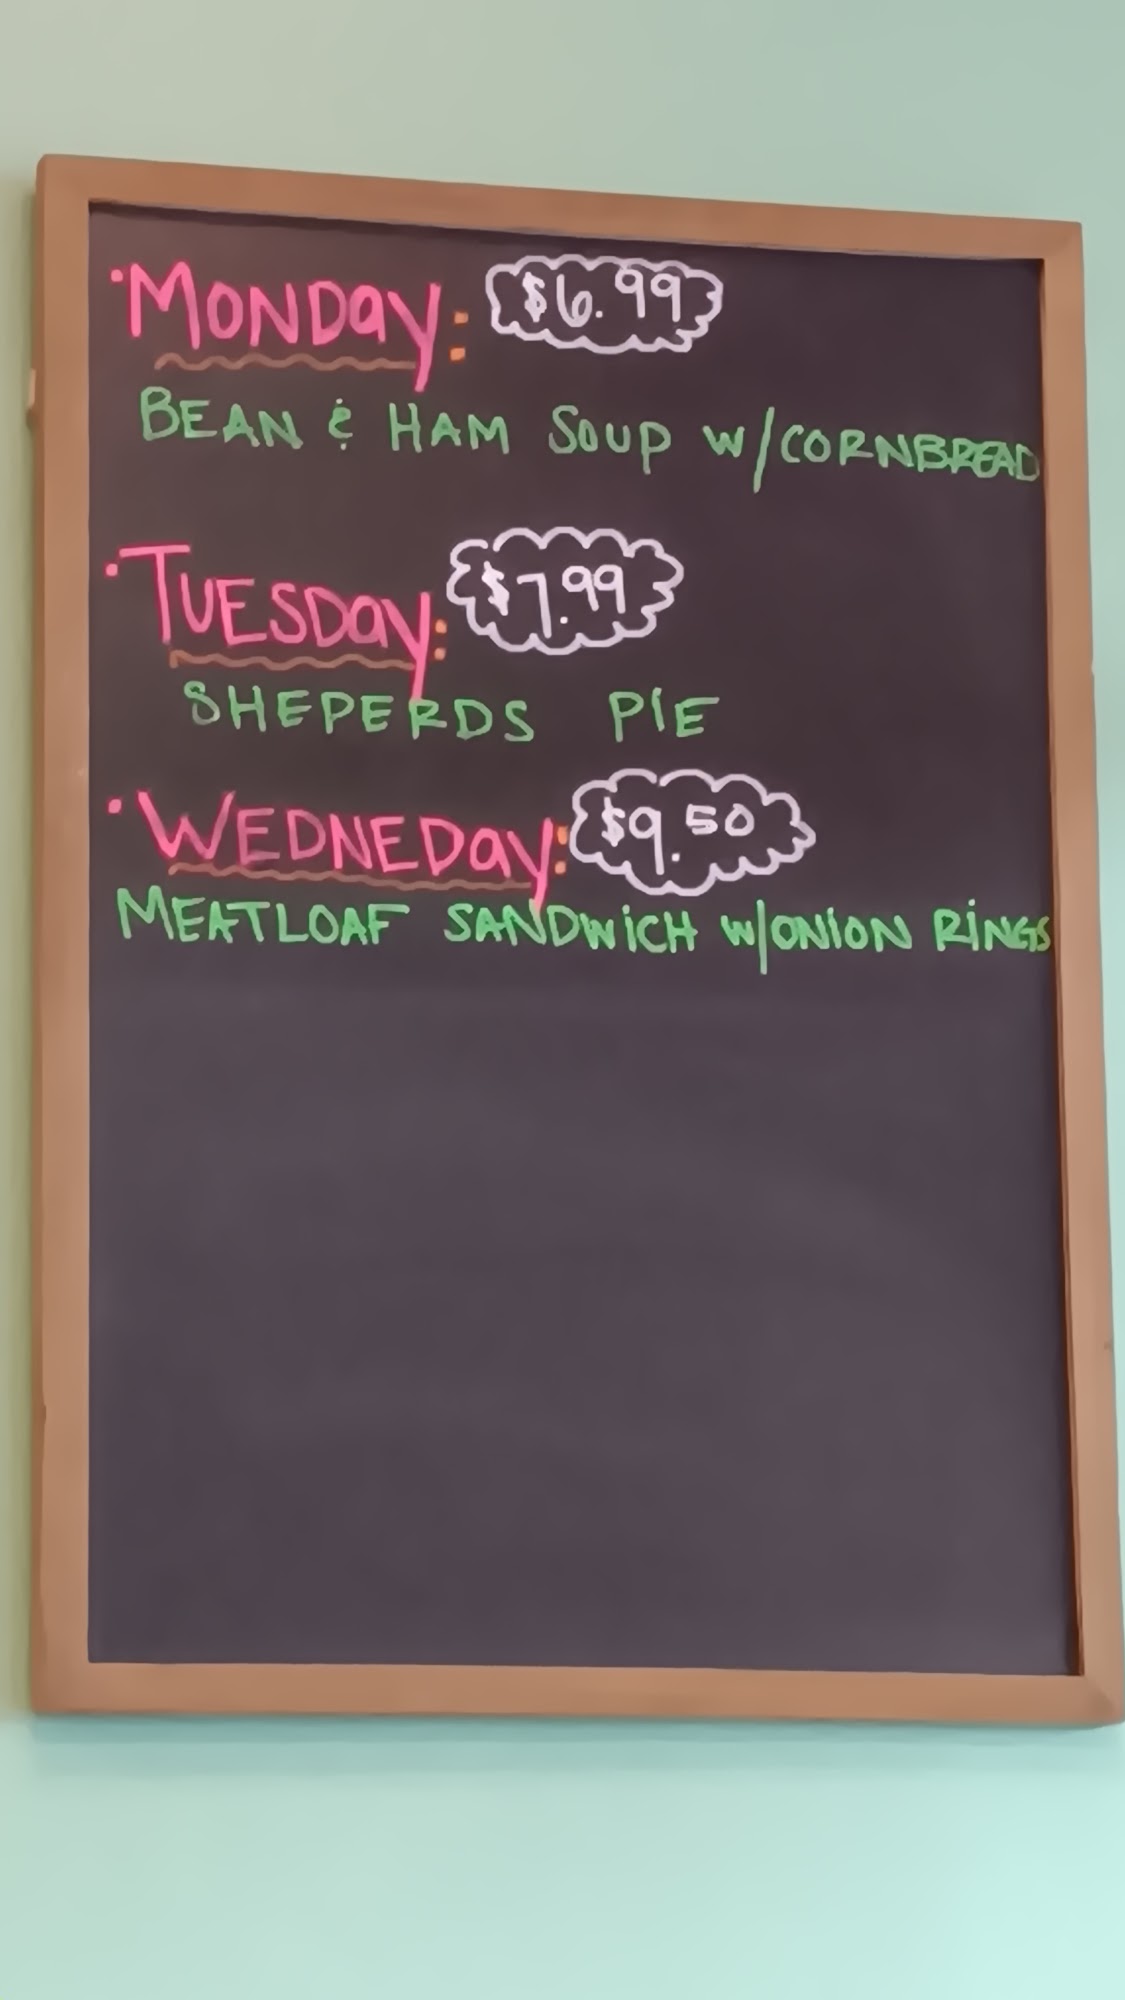 ·MONDAY: $6.99
BEAN & HAM SOUP W/CORNBREAD
·TUESDAY: $7.99
SHEPERDS PIE
·WEDNEDAY: $9.50
MEATLOAF SANDWICH W/ONION RINGS